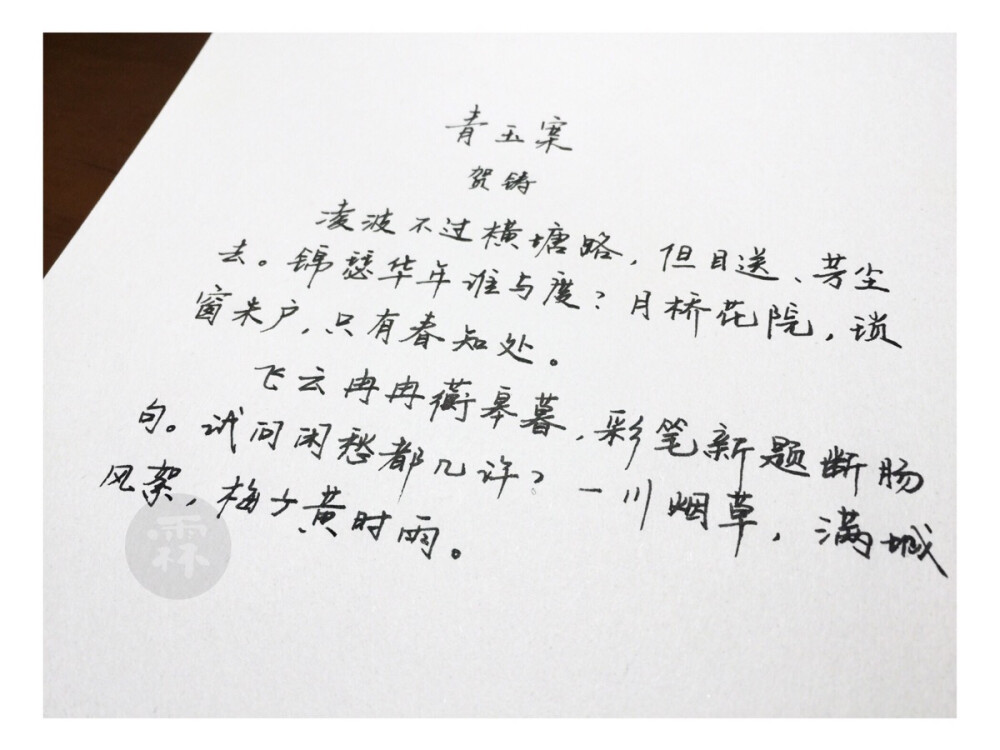 青玉案
贺铸
凌波不过横塘路，但目送、芳尘
去。锦瑟华年谁与度？月桥花院，琐
窗朱户，只有春知处。
飞云冉冉蘅皋暮，彩笔新题断肠
句。试问闲愁都几许？一川烟草，满城
风絮，梅子黄时雨。
霖